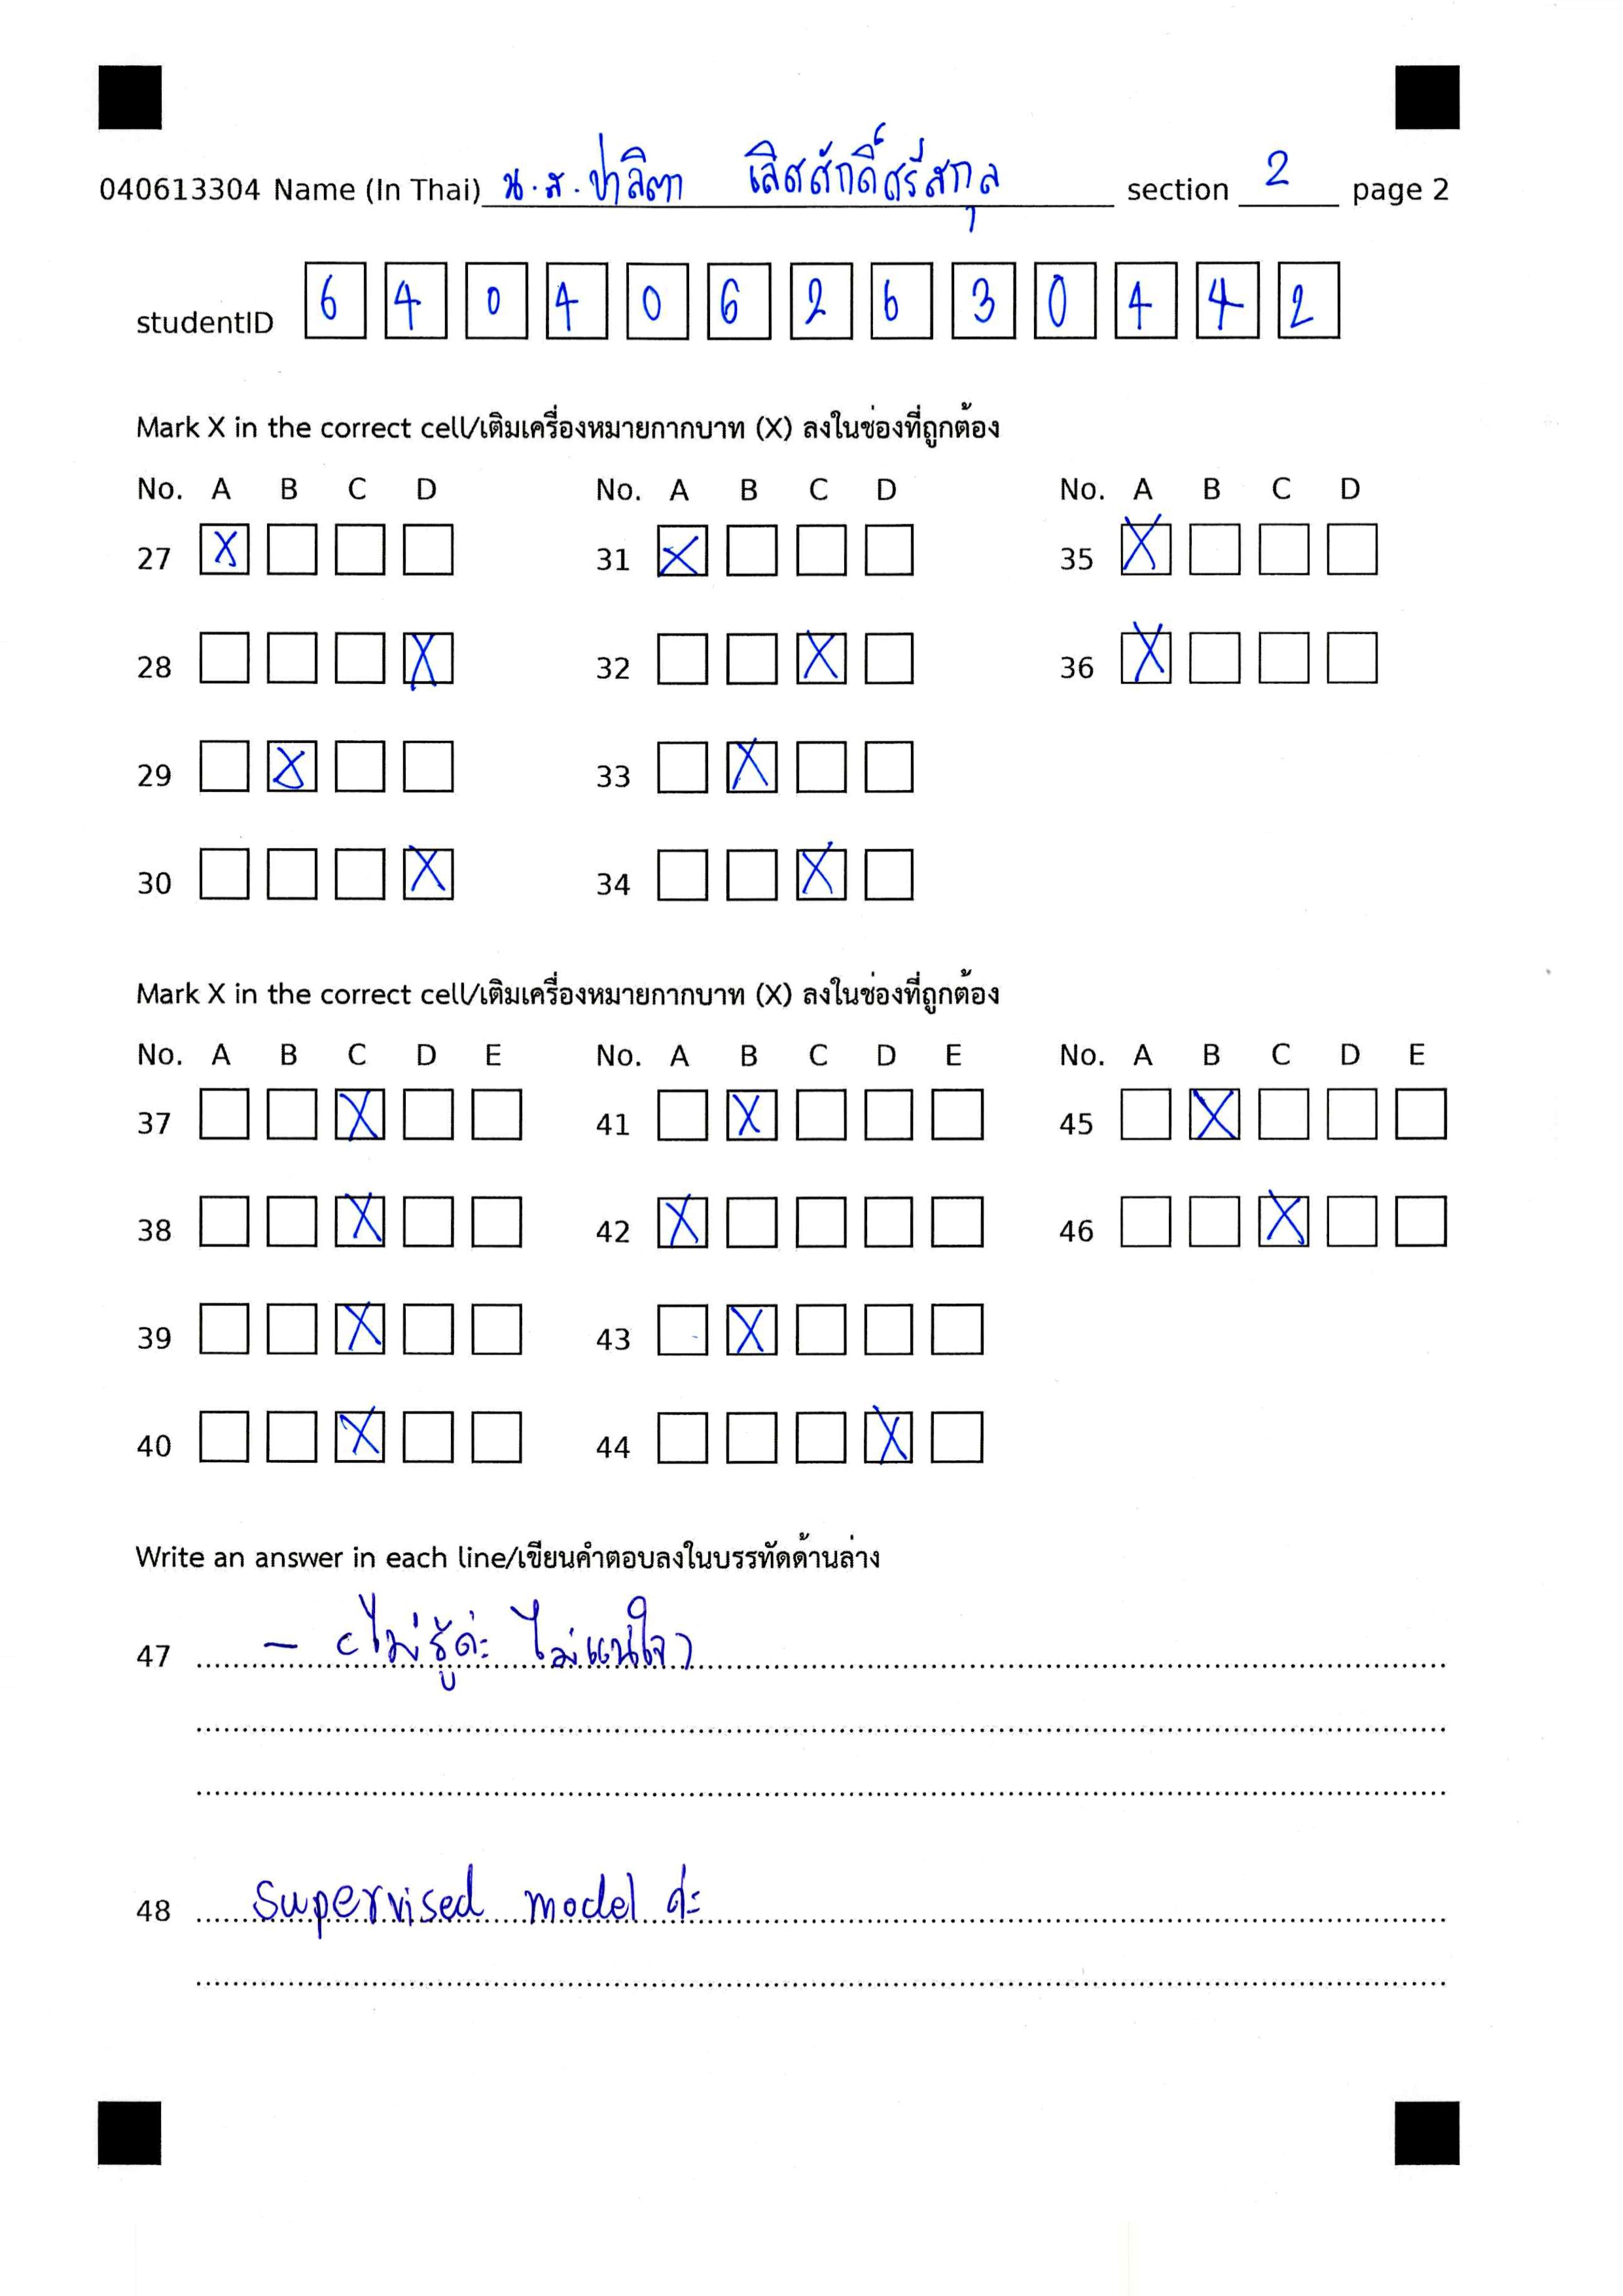 040613304 Name (In Thai) น.ส. ปาลิตา เลิศศักดิ์ศรีสกุล section 2 page 2
studentID 6 4 0 4 0 6 2 6 3 0 4 4 2
Mark X in the correct cell/เติมเครื่องหมายกากบาท (X) ลงในช่องที่ถูกต้อง
No. A B C D No. A B C D No. A B C D
27 X 31 X 35 X
28 X 32 X 36 X
29 X 33 X
30 X 34 X
Mark X in the correct cell/เติมเครื่องหมายกากบาท (X) ลงในช่องที่ถูกต้อง
No. A B C D E No. A B C D E No. A B C D E
37 X 41 X 45 X
38 X 42 X 46 X
39 X 43 X
40 X 44 X
Write an answer in each line/เขียนคำตอบลงในบรรทัดด้านล่าง
47 – (ไม่รู้ค่ะ ไม่แน่ใจ)
48 supervised model ค่ะ